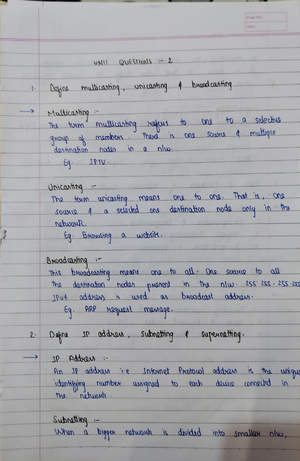 UNIT QUESTIONS :- 2
1. Define multicasting, unicasting & broadcasting
→ Multicasting :-
The term multicasting refers to one to a selective
group of members. There is one source & multiple
destination nodes in a n/w.
Eg. IPTV.
Unicasting :-
The term unicasting means one to one. That is, one
source & a selected one destination node only in the
network.
Eg. Browsing a website.
Broadcasting :-
This broadcasting means one to all. One source to all
the destination nodes present in the n/w. 255.255.255.255
IPv4 address is used as broadcast address.
Eg. ARP Request message.
2. Define IP address, Subnetting & Supernetting.
→ IP Address :-
An IP address i.e Internet Protocol address is the unique
identifying number assigned to each device connected in
the network
Subnetting :-
When a bigger network is divided into smaller n/w,